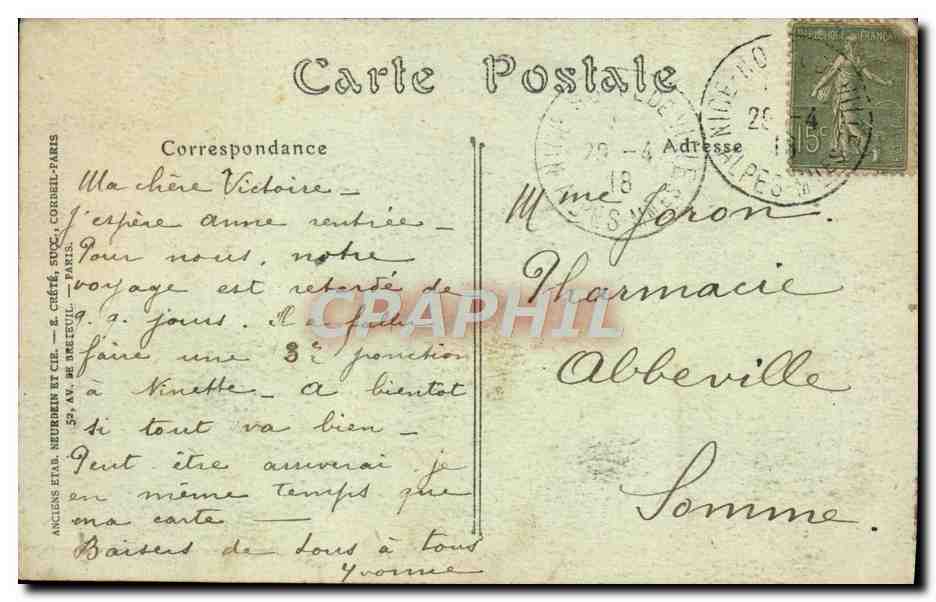 Carte Postale
Correspondance
Adresse
Ma chère Victoire –
J'espère anne rentrée –
Pour nous, notre
voyage est retardé de
q. q. jours. Il a fallu
faire une 3e ponction
à Ninette – A bientot
si tout va bien –
Peut être arriverai je
en même temps que
ma carte —
Baisers de tous à tous
Yvonne
Mme Joron.
Pharmacie
Abbeville
Somme.
ANCIENS ETAB. NEURDEIN ET CIE. — E. CRÉTÉ, SUCC., CORBEIL-PARIS
52, AV. DE BRETEUIL. — PARIS.
29 -4
18
NICE
29 -4
18
ALPES M
15c
CRAPHIL